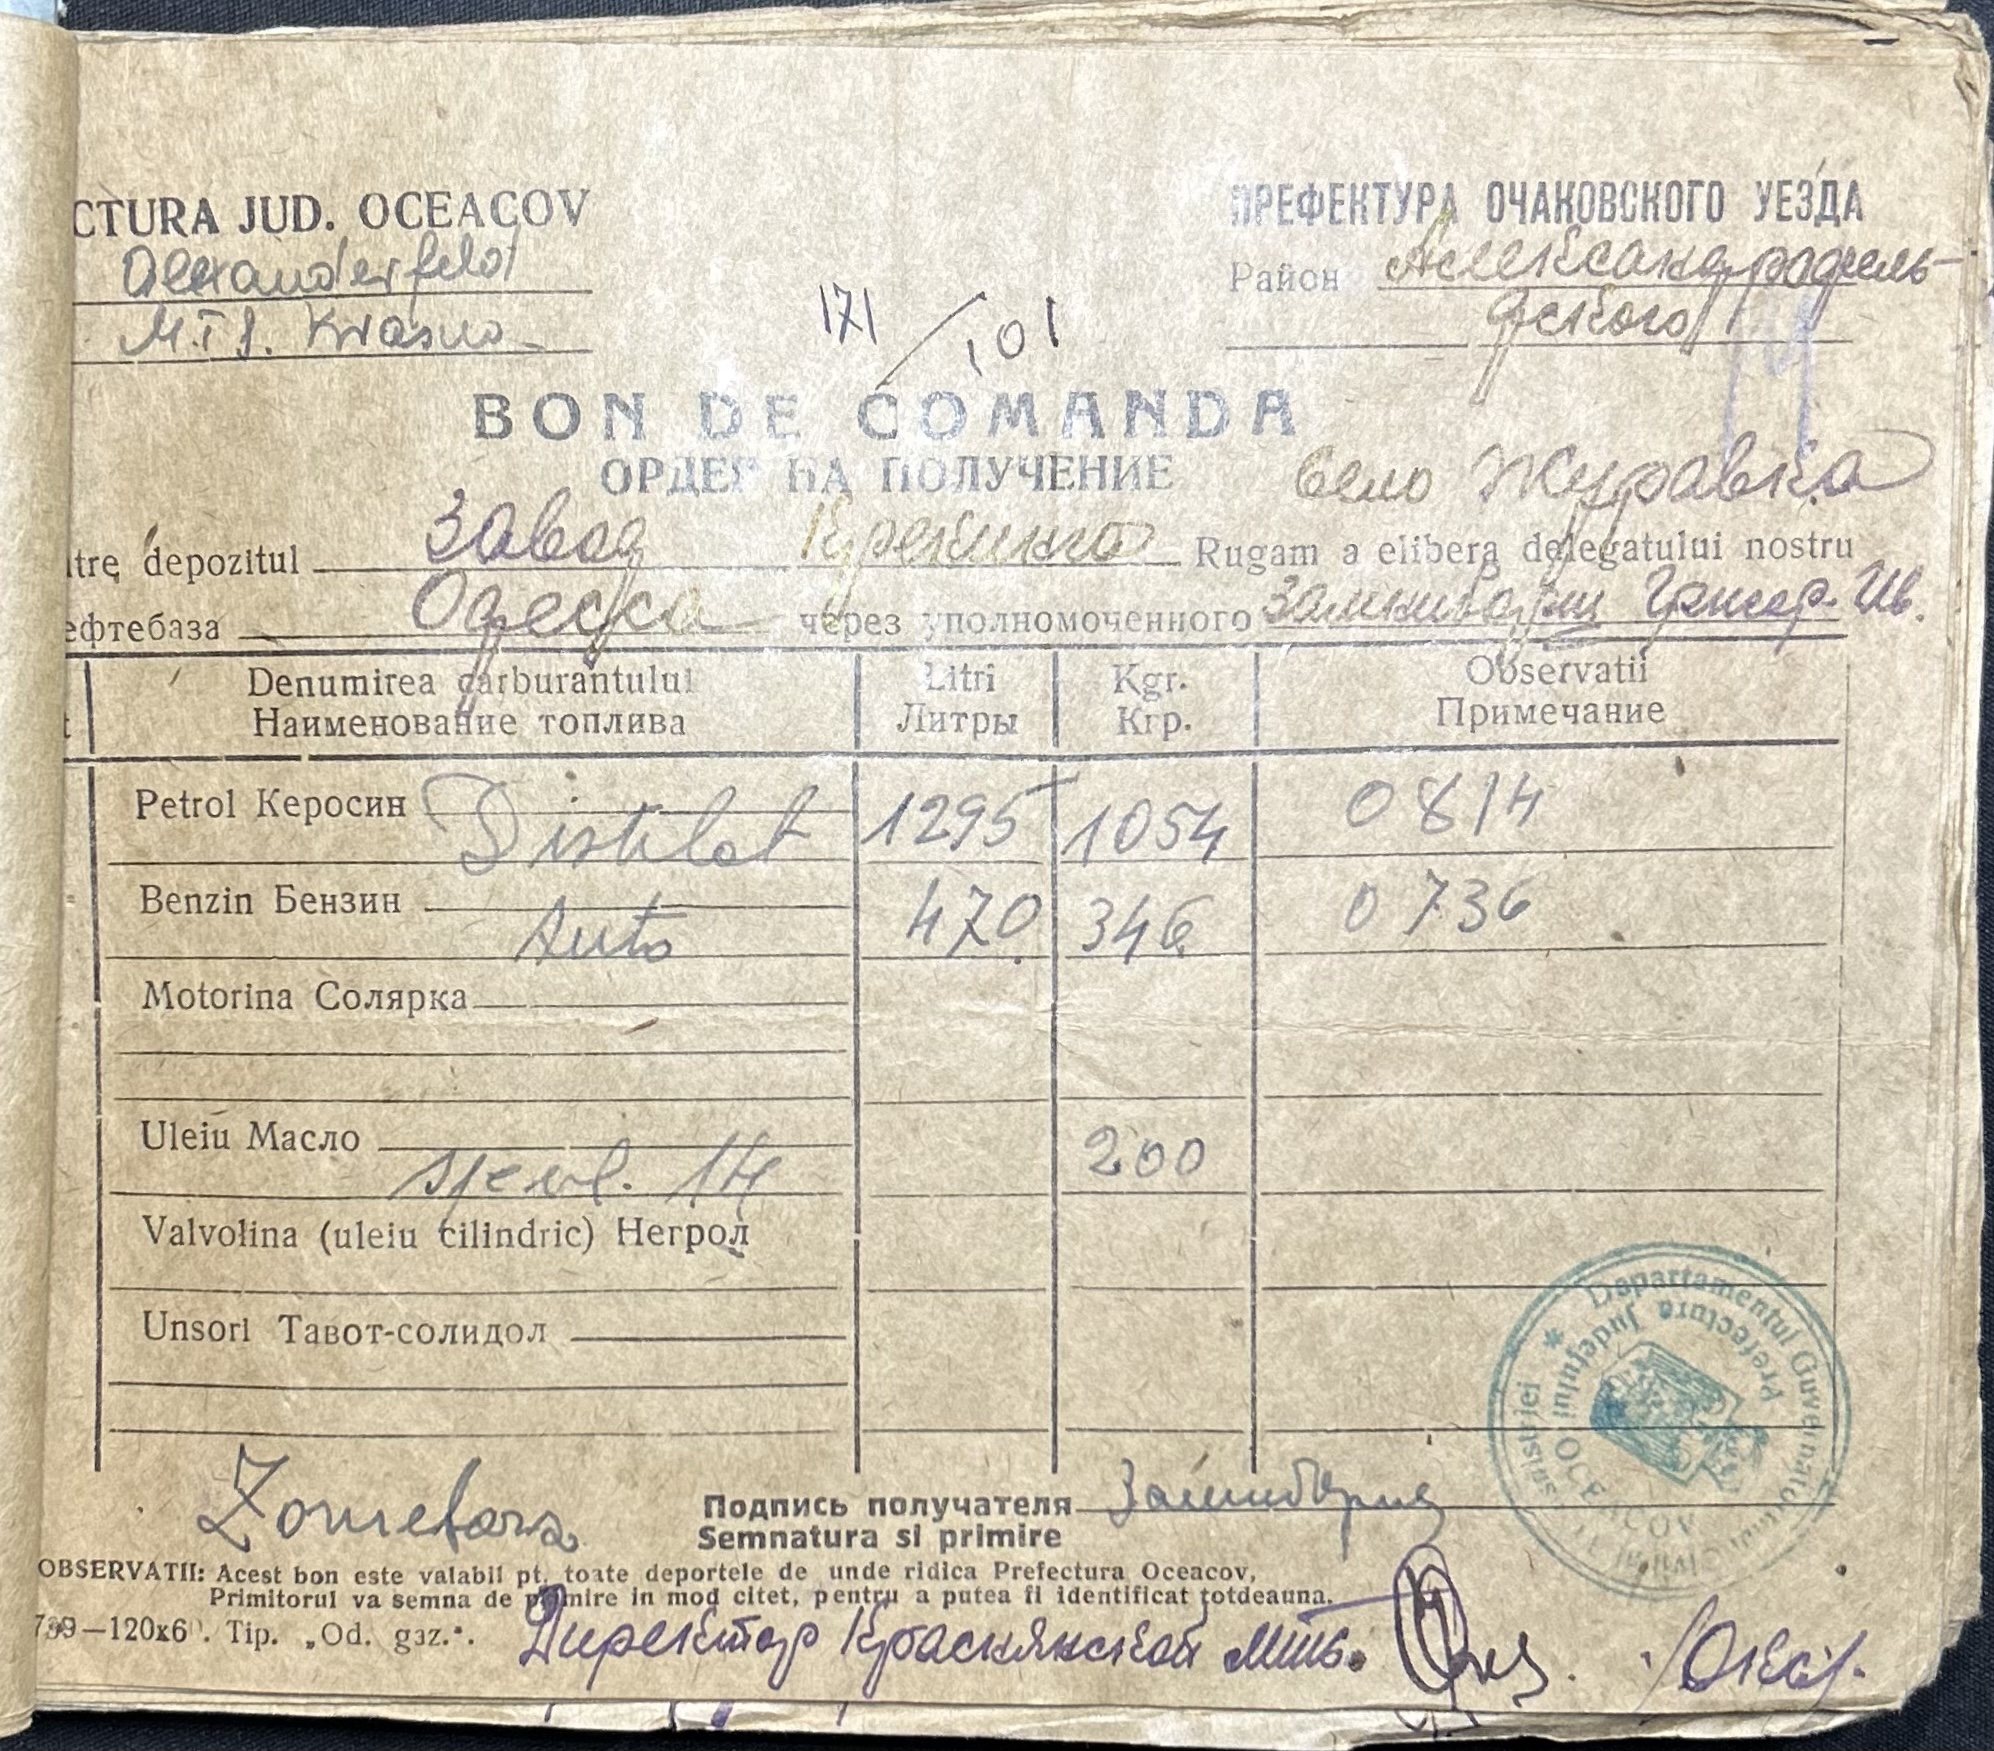 CTURA JUD. OCEACOV
ПРЕФЕКТУРА ОЧАКОВСКОГО УЕЗДА
Alexanderfeld
Район Александрофель-
дского
M.T.S. Krasno-
171/101
BON DE COMANDA
ОРДЕР НА ПОЛУЧЕНИЕ
село Журавка
ltre depozitul Завод Крекинго Rugam a elibera delegatului nostru
ефтебаза Одесса через уполномоченного Григор. Ив.
Denumirea carburantului Litri Kgr. Observatii
Наименование топлива Литры Кгр. Примечание
Petrol Керосин Distilat 1295 1054 0814
Benzin Бензин Auto 470 346 0736
Motorina Солярка
Uleiu Масло 200
Valvolina (uleiu cilindric) Негрол
Unsori Тавот-солидол
Подпись получателя
Semnatura si primire
OBSERVATII: Acest bon este valabil pt. toate deportele de unde ridica Prefectura Oceacov,
Primitorul va semna de primire in mod citet, pentru a putea fi identificat totdeauna.
739—120x60. Tip. „Od. gaz.".
Директор Краснянской мтс.
Departamentul Guvernatorul
Prefectura Judeţului
OCEACOV